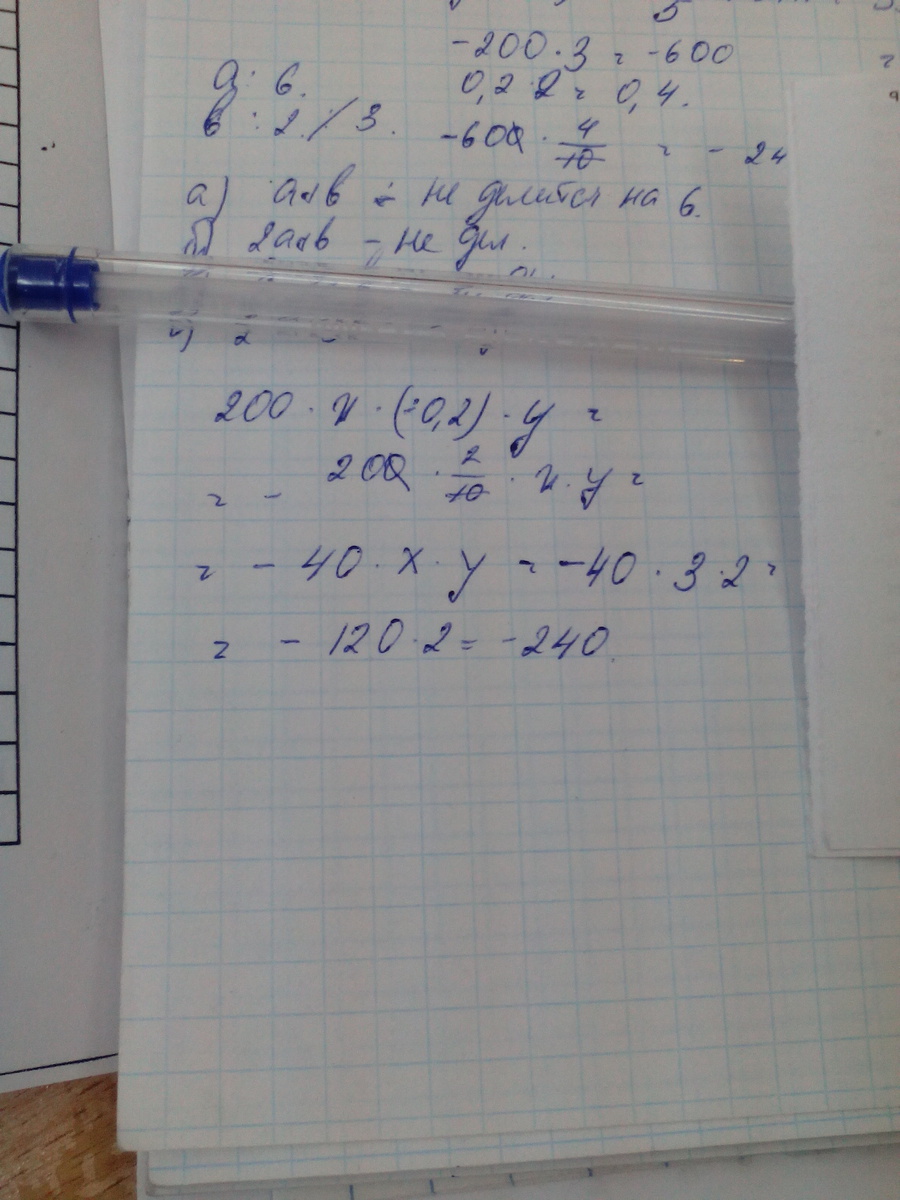 -200 · 3 = -600
a : 6.
0,2 · 2 = 0,4.
в : 2. / 3.
-600 · 4/10 = - 24
а) a + в - не делится на 6.
б) 2a + в - не дел.
200 · x · (-0,2) · y =
= - 200 · 2/10 · x · y =
= - 40 · x · y = -40 · 3 · 2 =
= - 120 · 2 = -240.